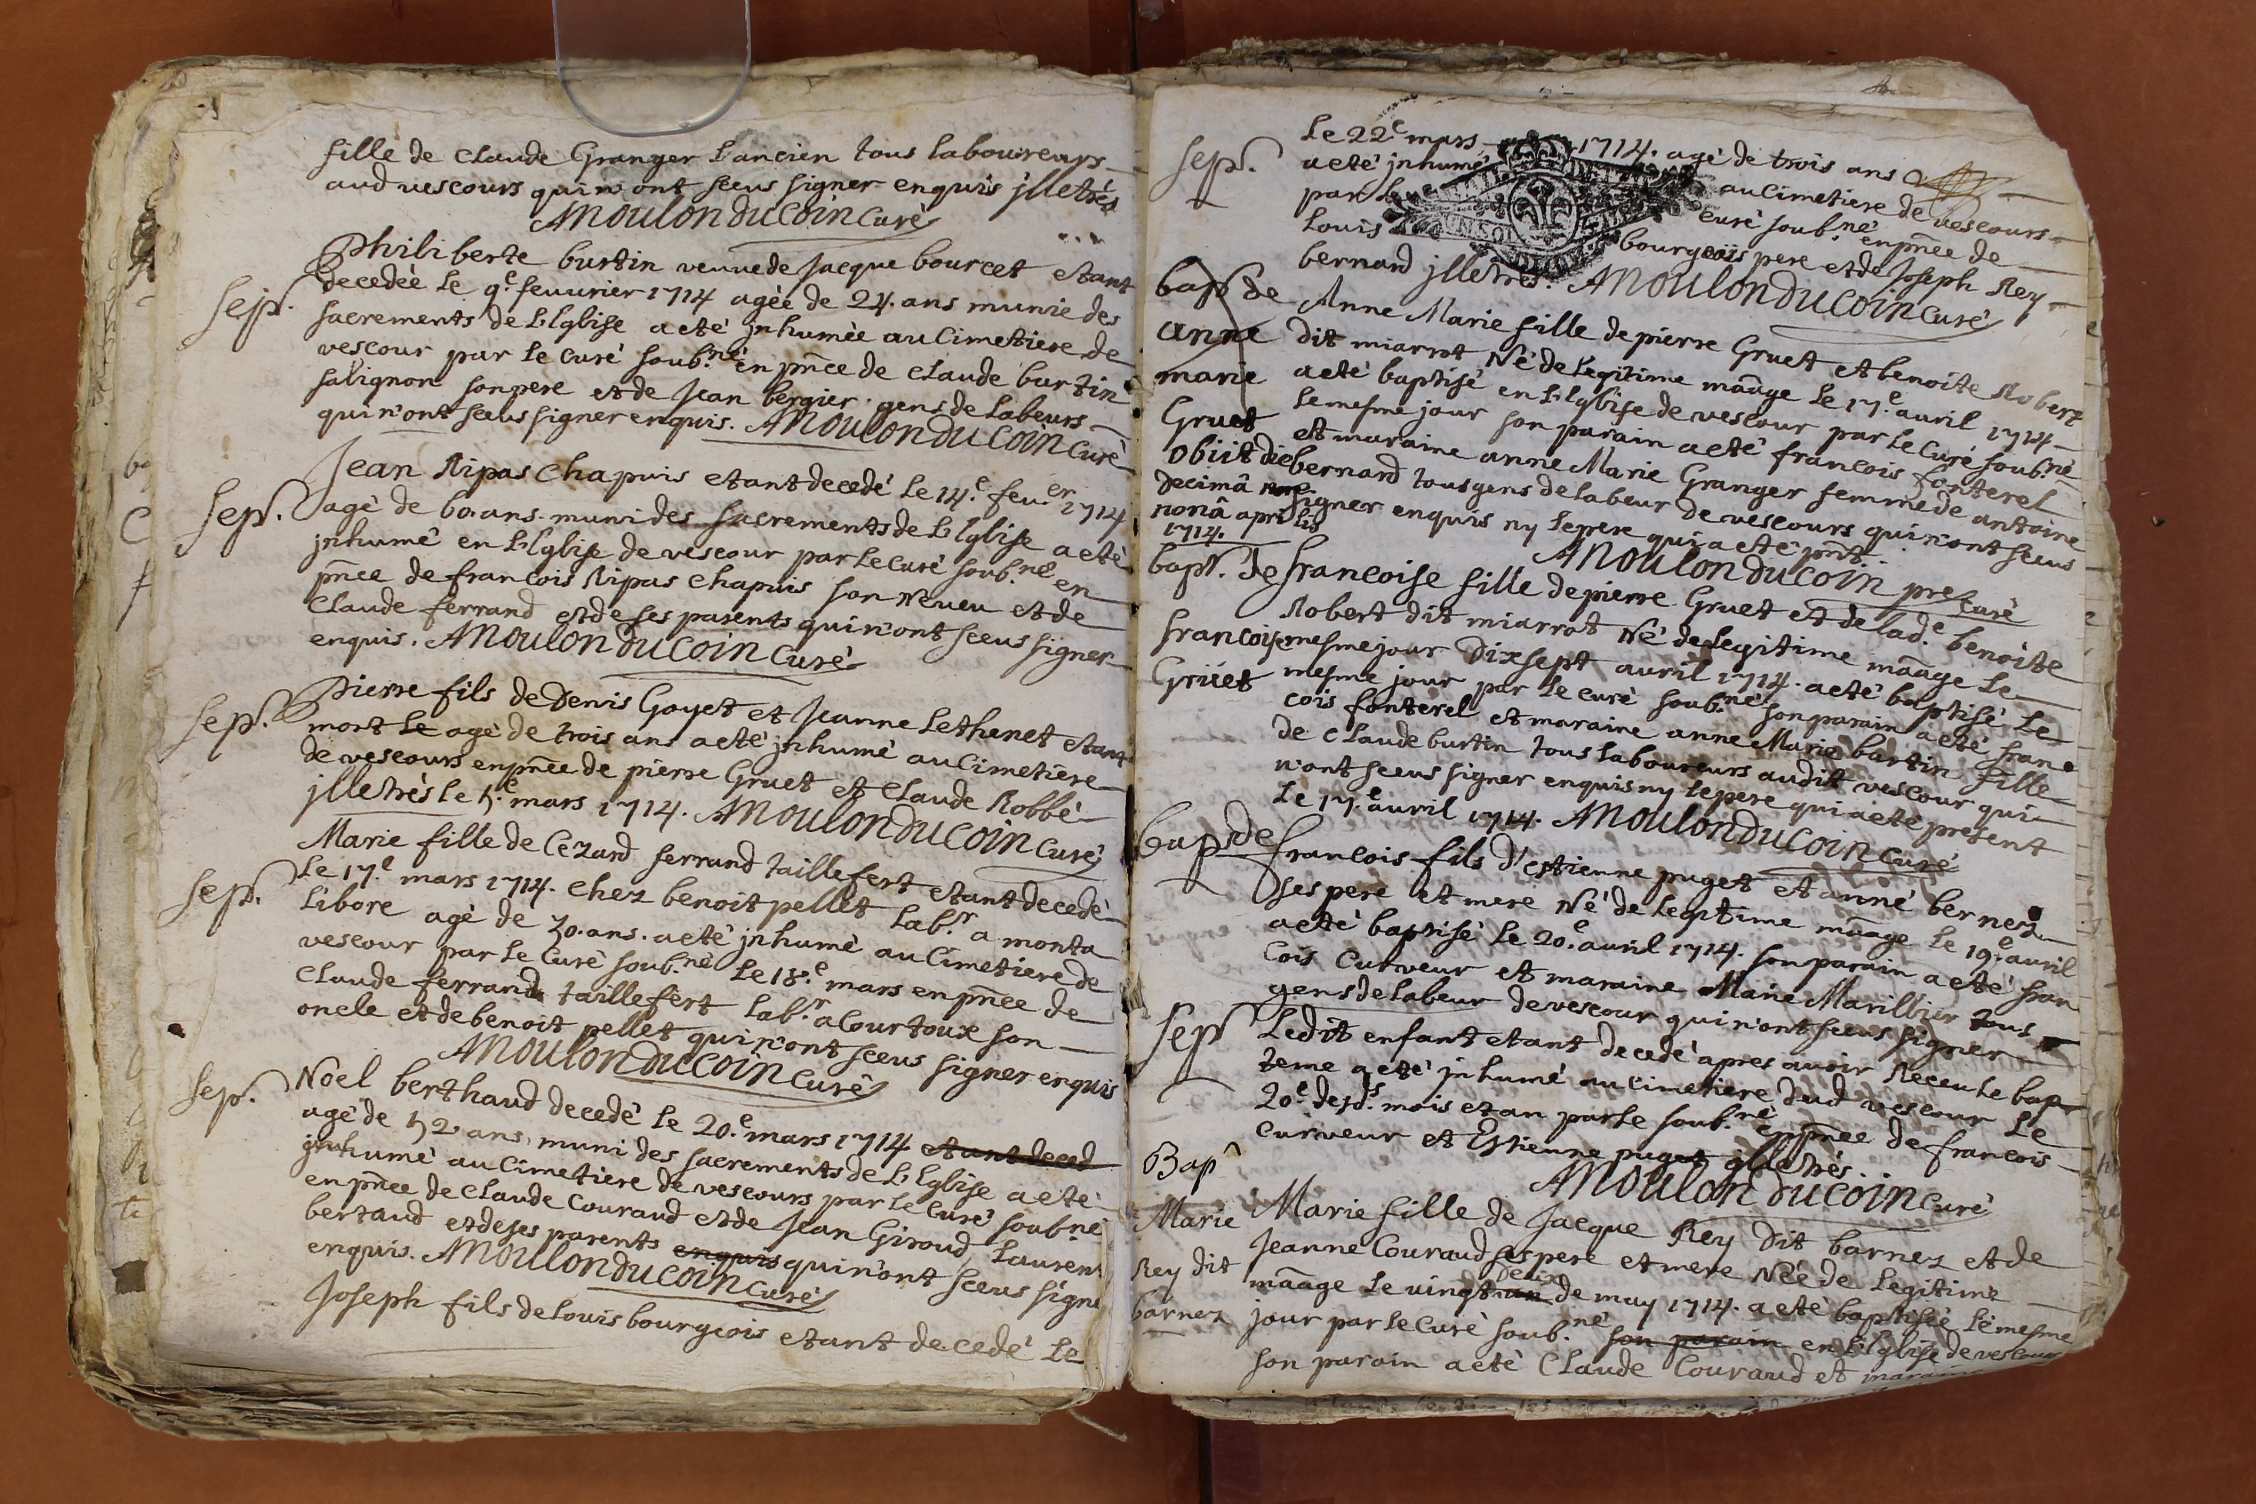 fille de claude Granger Lancien tous laboureurs
aud vescours qui n'ont sceus signer enquis jlletrés
AMoulon du Coin Curé
Philiberte burtin veuve de Jacque bourcet etant
sep.
decedée le 9e feuvrier 1714 agée de 24. ans munie des
sacrements de L'Eglise a eté jnhumée au cimetiere de
vescour par le curé soub.né en pñce de claude burtin
salignon son pere et de Jean bergier gens de labeurs
qui n'ont sceus signer enquis. AMoulon du Coin Curé
Jean Ripas Chapuis etant decedé le 14.e feu.er 1714
Sep.
agé de 60. ans. muni des sacrements de L'Eglise a eté
jnhumé en L'Eglise de vescour par le Curé soub.né en
pñce de francois Ripas Chapuis son Neveu et de
Claude ferrand et de ses parents qui n'ont sceus signer
enquis. AMoulon du Coin Curé
Pierre fils de Denis Goyet et Jeanne Lethenet etant
Sep.
mort le agé de trois ans a eté jnhumé au cimetiere
de vescours en pñce de pierre Gruet et claude Robbé
jlletrés le 5.e mars 1714. AMoulon du Coin Curé
Marie fille de Cezard ferrand taillefert etant decedé
Sep.
le 17.e mars 1714. chez benoit pellet lab.r a monta
libore agé de 30. ans. a eté jnhumé au Cimetiere de
vescour par le Curé soub.né le 18.e mars en pñce de
claude ferrand taillefert lab.r a Courtoux son
oncle et de benoit pellet qui n'ont sceus signer enquis
AMoulon du Coin Curé
Sep.
Noel berthaud decedé le 20.e mars 1714 etant deced
agé de 52 ans, muni des sacrements de L'Eglise a eté
jnhumé au cimetiere de vescours par le Curé soub.né
en pñce de claude Couraud et de Jean Giroud Laurent
bertaud et de ses parents enquis qui n'ont sceus signe
enquis. AMoulon du Coin Curé
Joseph fils de Louis bourgeois etant decedé le
le 22e mars 1714. agé de trois ans
Sep.
a eté jnhumé au cimetiere de vescours
par le curé soub.né en pñce de
Louis bourgeois pere et de Joseph Rey
bernard jlletrés. AMoulon du Coin Curé
bap de
anne
marie
Gruet
obiit die
decimâ
nonâ aprilis
1714.
Anne Marie fille de pierre Gruet et benoite Robert
dit miarrot Né de legitime mãage le 17.e avril 1714
a eté baptisé en L'Eglise de vescour par le Curé soub.né
le mesme jour son parain a eté francois fonterel
et maraine anne Marie Granger femme de antoine
bernard tous gens de labeur de vescours qui n'ont sceus
signer enquis ny le pere qui a eté pñt.
AMoulon du Coin pre Curé
bap.t de
francoise
Grüet
francoise fille de pierre Gruet et de lad.e benoite
Robert dit miarrot Né de legitime mãage le
mesme jour Dixsept avril 1714. a eté baptisé le
mesme jour par le curé soub.né son parain a eté fran
cois fonterel et maraine anne Marie burtin fille
de claude burtin tous laboureurs audit vescour qui
n'ont sceus signer enquis ny le pere qui a eté present
le 17.e avril 1714. AMoulon du Coin Curé
bap de
francois fils d'estienne puget et anné bernez
ses pere et mere Né de legitime mãage le 19.e avril
a eté baptisé le 20.e avril 1714. son parain a eté fran
cois Curveur et maraine Marie Marillier tous
gens de labeur de vescour qui n'ont sceus signer
Sep
Ledit enfant etant decedé apres avoir receu le bap
teme a eté jnhumé au cimetiere dud vescour le
20.e desd.s mois et an par le soub.né en pñce de francois
curveur et Estienne puget jlletrés.
AMoulon du Coin Curé
Bap
Marie
Rey dit
barnez
Marie fille de Jacque Rey dit barnez et de
Jeanne Couraud ses pere et mere Née de legitime
mãage le vingt un deux de may 1714. a eté baptisée le mesme
jour par le Curé soub.né son parain en L'Eglise de vescour
son parain a eté Claude Couraud et maraine